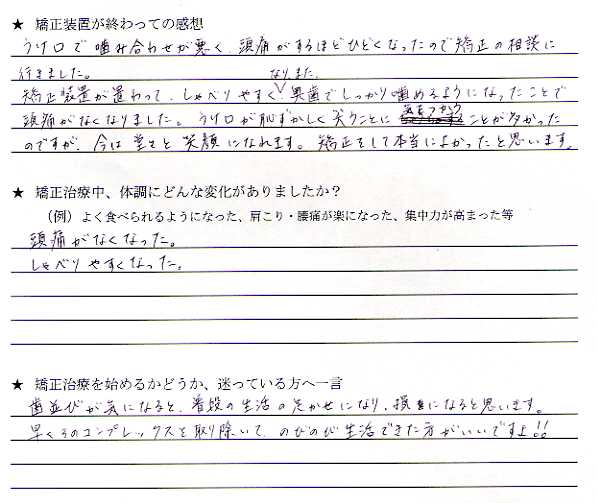 ★ 矯正装置が終わっての感想
うけ口で噛み合わせが悪く、頭痛がするほどひどくなったので矯正の相談に
行きました。
なり、また、
矯正装置が遅わって、しゃべりやすく奥歯でしっかり噛めるようになったことで
頭痛がなくなりました。うけ口が恥ずかしく笑うことに気をつかうことが多かった
のですが、今は堂々と笑顔になれます。矯正をして本当によかったと思います。
★ 矯正治療中、体調にどんな変化がありましたか？
（例）よく食べられるようになった、肩こり・腰痛が楽になった、集中力が高まった等
頭痛がなくなった。
しゃべりやすくなった。
★ 矯正治療を始めるかどうか、迷っている方へ一言
歯並びが気になると、普段の生活の足かせになり、損になると思います。
早くそのコンプレックスを取り除いて、のびのび生活できた方がいいですよ!!